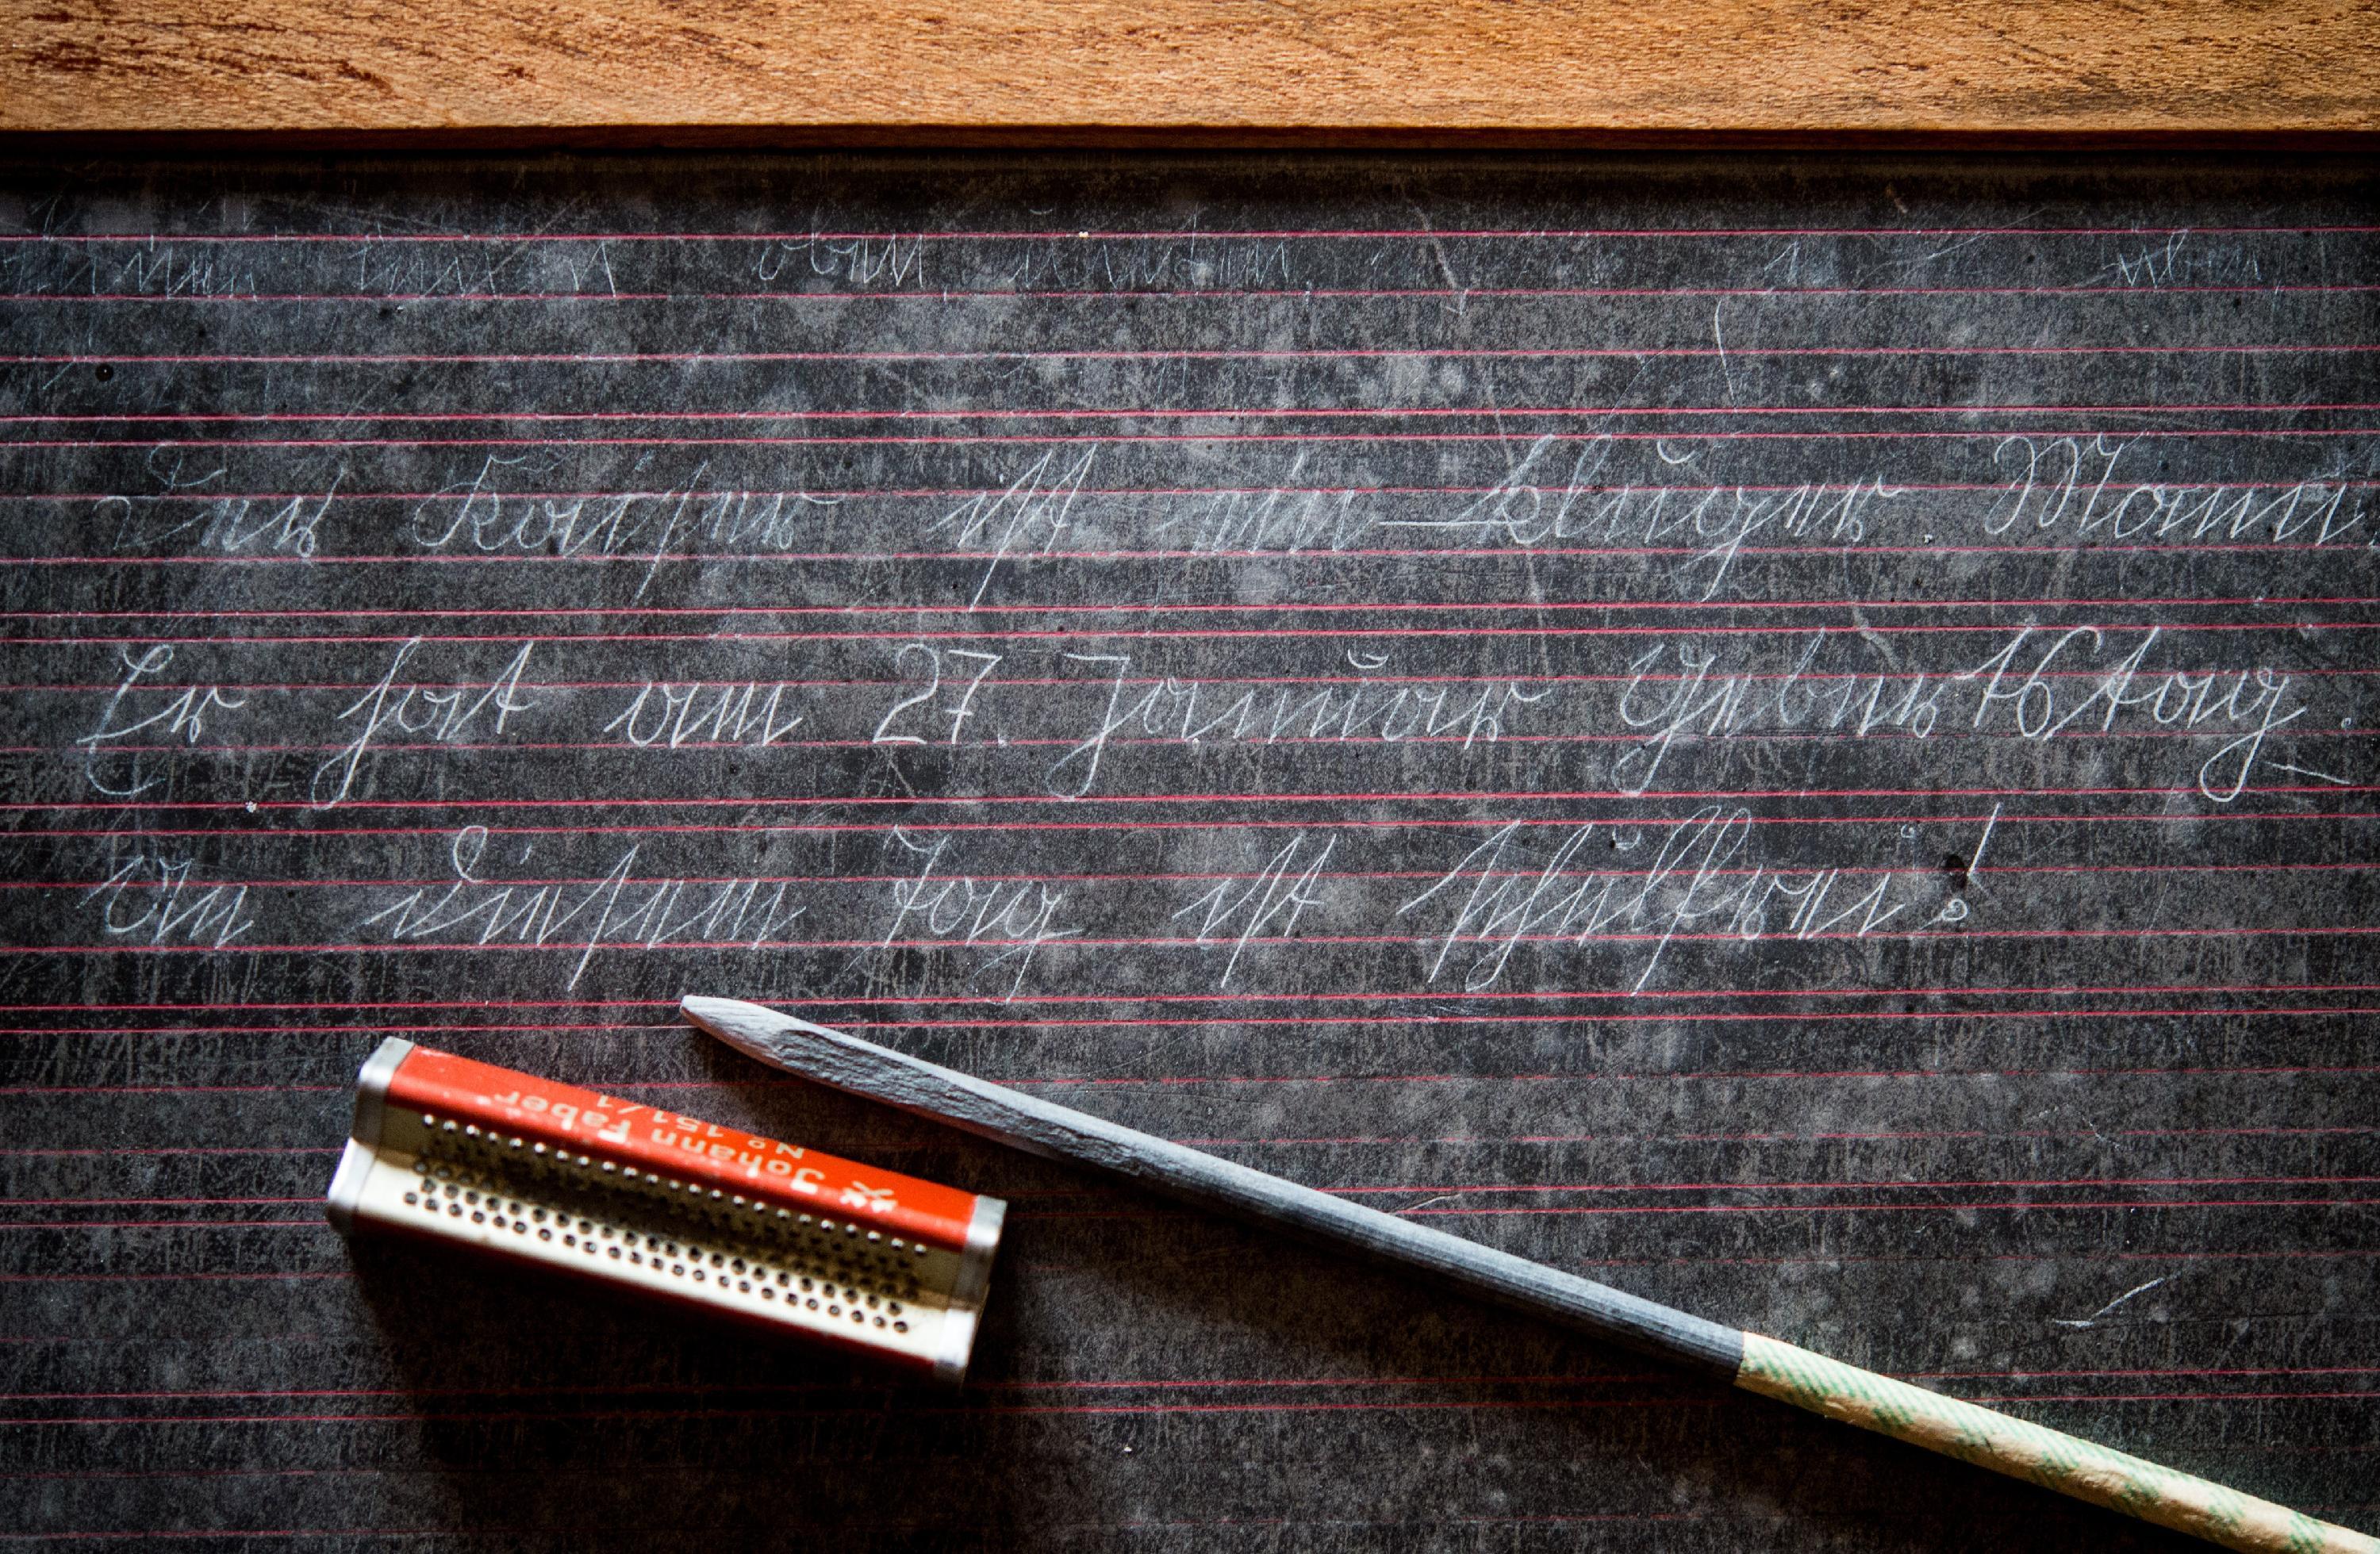 oben unten
Der Kaiser ist ein kluger Mann.
Er hat am 27. Januar Geburtstag.
An diesem Tag ist schulfrei!
Johann Faber
No 151/1